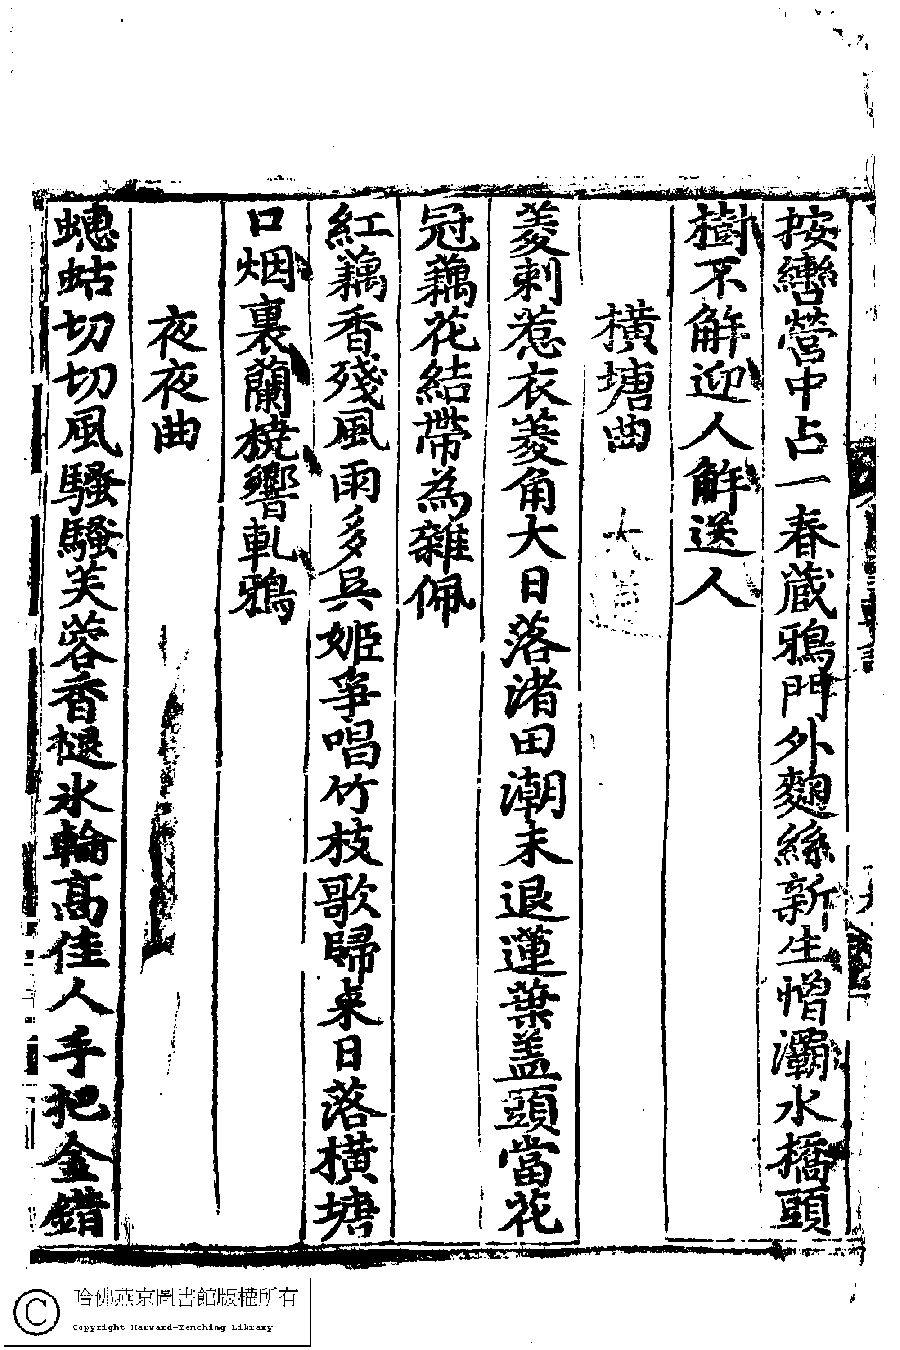 按轡營中占一春蔵鴉門外麴絲新生憎灞水橋頭
樹不解迎人解送人
橫塘曲
菱刺惹衣菱角大日落渚田潮未退蓮葉盖頭當花
冠藕花結帶為雜佩
紅藕香殘風雨多吳姬爭唱竹枝歌歸来日落橫塘
口烟裏蘭橈響軋鴉
夜夜曲
蟪蛄切切風騷騷芙蓉香褪氷輪高佳人手把金錯
哈佛燕京圖書館版權所有
Copyright Harvard-Yenching Library